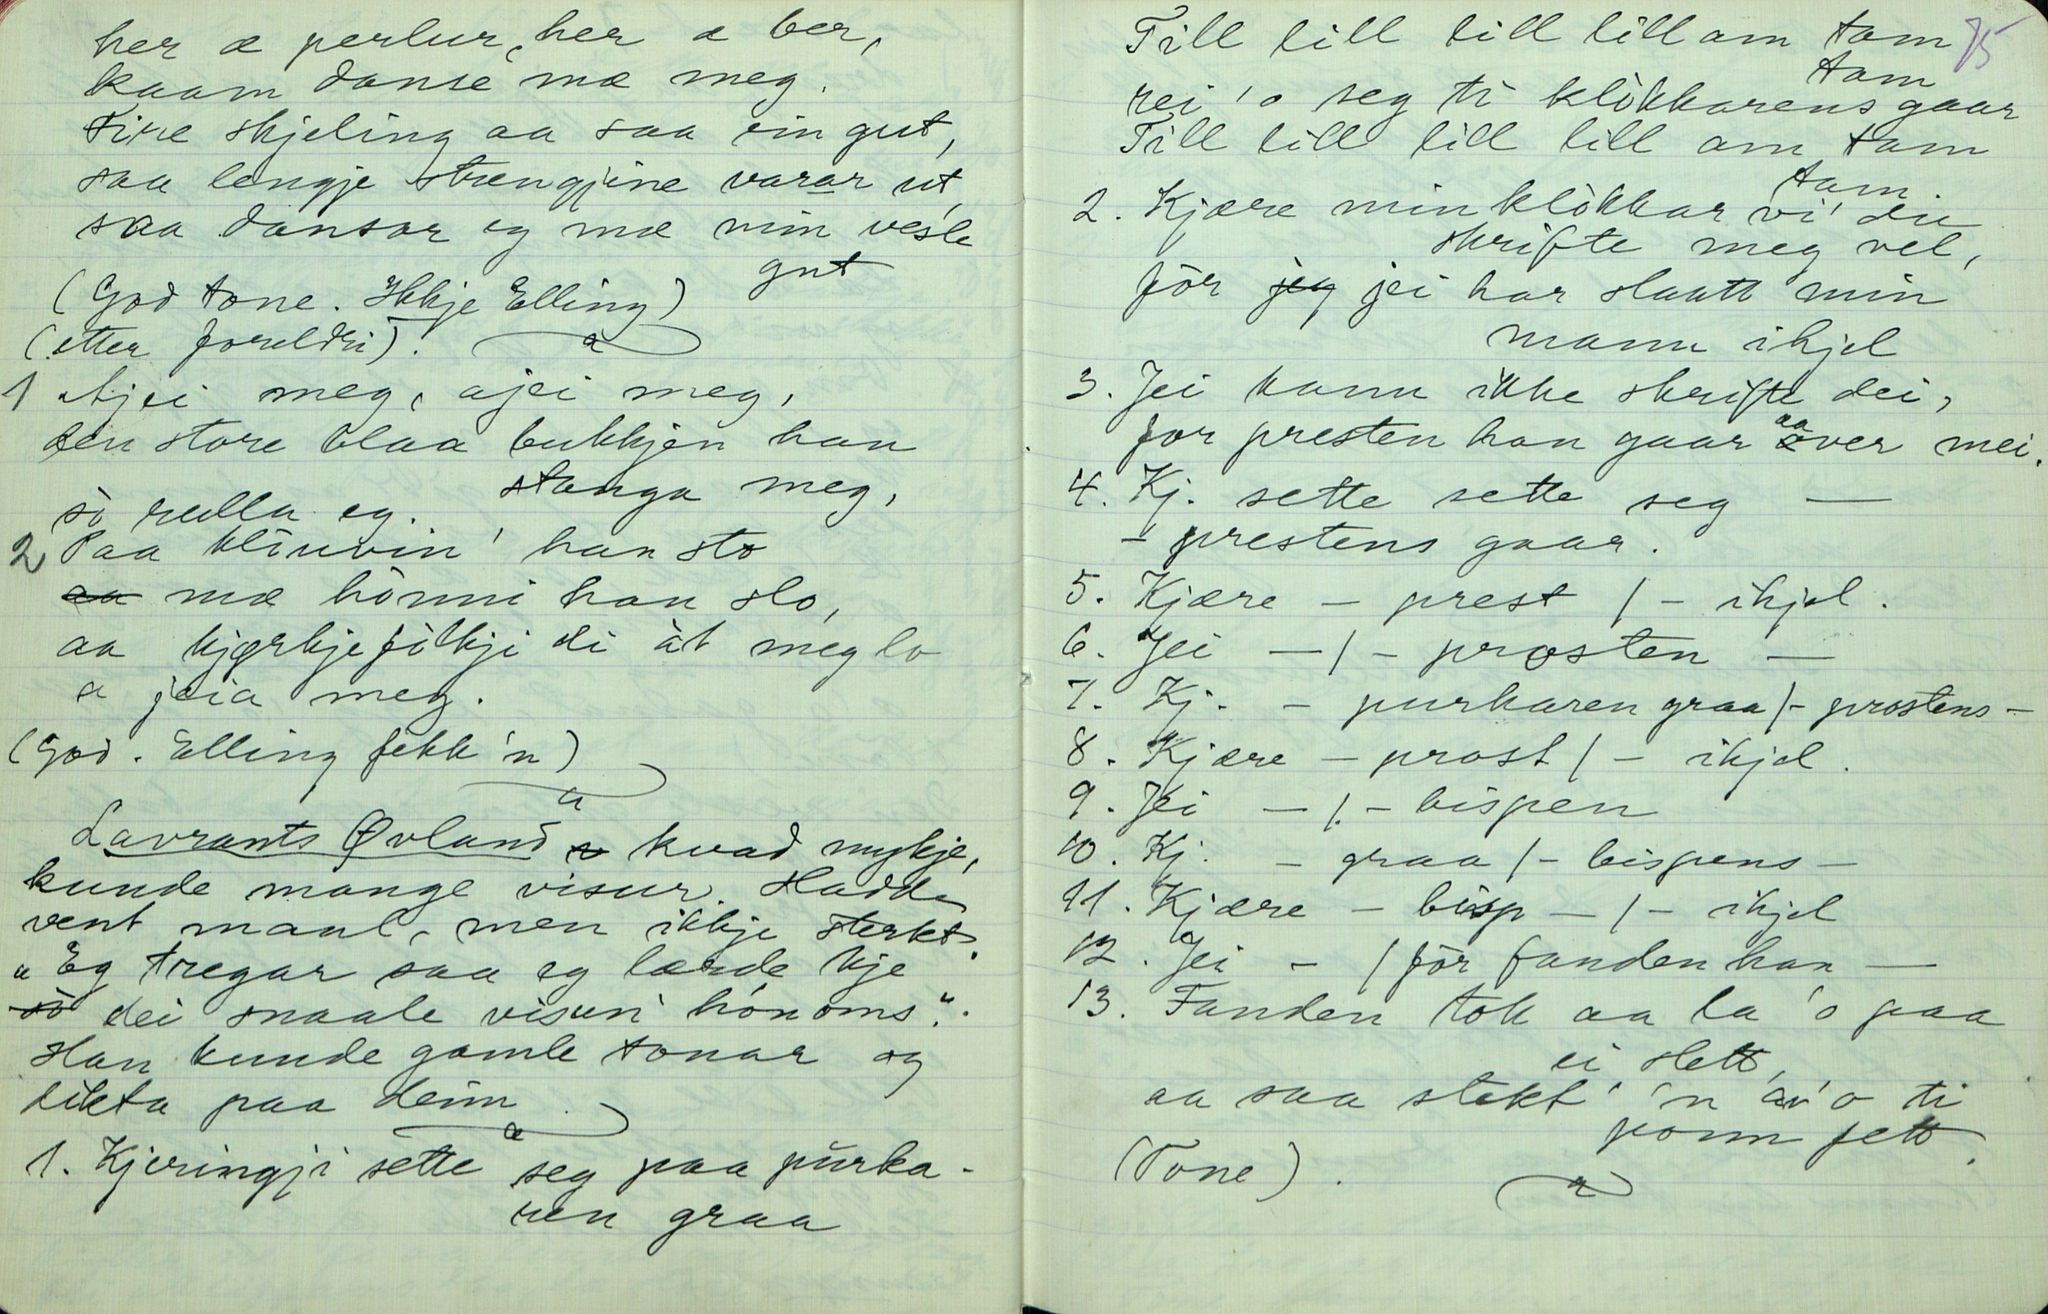 her æ perlur, her æ ber,
kaam danse mæ meg.
Fire skjeling aa saa ein gut,
saa lengje strængjine varar ut,
saa dansar eg mæ min vesle
gut
(God tone. Ikkje Elling)
(etter foreldri).
1 Ajei meg, ajei meg,
den store blaa bukkjen han
stanga meg,
so rulla eg.
2 Paa kluvin' han sto
aa mæ hònni han slo,
aa kjørkjefòlkji di àt meg lo
a jeia meg.
(God. Elling fekk 'n)
Lavrants Øvland kvad mykje,
kunde mange visur. Hadde
vent maal, men ikkje sterkt.
"Eg tregar saa eg lærde kje
so dei snaale visun' hònoms".
Han kunde gamle tonar og
dikta paa deim.
1. Kjeringji sette seg paa purka-
ren graa
75
Till lill lill lill am tam
tam
rei 'o seg ti klòkkarens gaar
Till lill lill lill am tam
tam.
2. Kjære min klòkkar vi' du
skrifte meg vel,
før jeg jei har slaatt min
mann ihjel
3. Jei kann ikke skrifte dei,
for presten han gaar aaver mei.
4. Kj. sette sette seg —
- prestens gaar.
5. Kjære – prest / – ihjel.
6. Jei – / – prosten —
7. Kj. – purkaren graa / – prostens –
8. Kjære – prost / – ihjel.
9. Jei – / – bispen
10. Kj. – graa / – bispens –
11. Kjære – bisp – / – ihjel
12. Jei – / før fanden han —
13. Fanden tok aa la 'o paa
ei slett,
aa saa stekt' 'n av 'o ti
ponn fett.
(Tone).